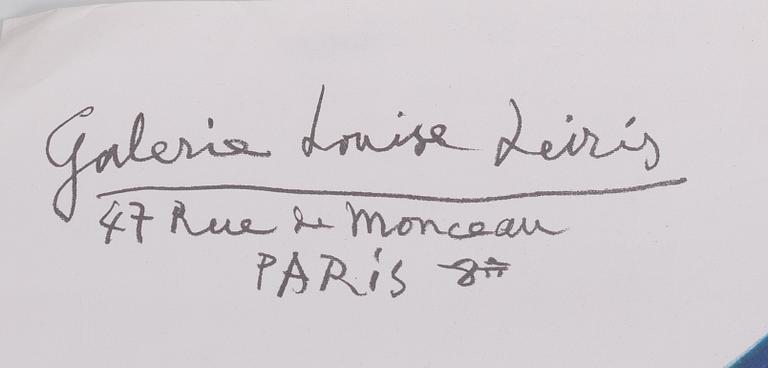 Galerie Louise Leiris
47 Rue de Monceau
PARIS 8e